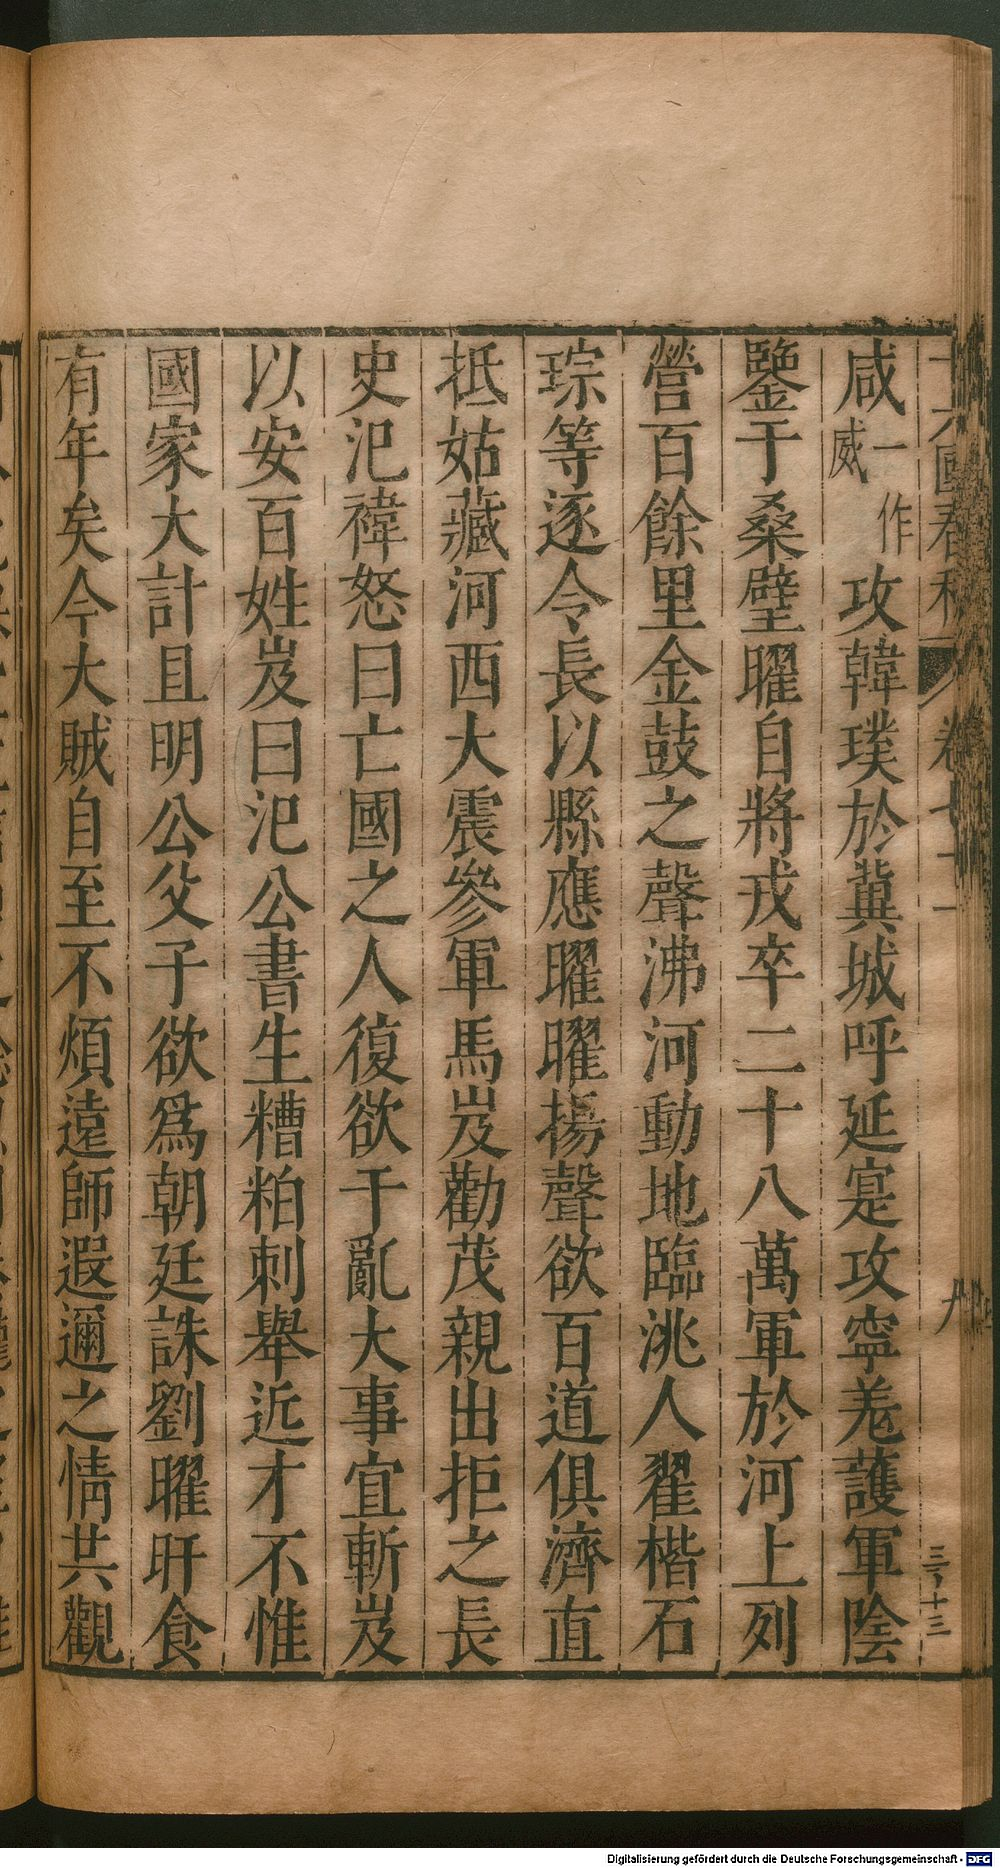 咸一作威攻韓璞於冀城呼延寔攻寧羗護軍陰
鑒于桑壁曜自將戎卒二十八萬軍於河上列
營百餘里金鼓之聲沸河動地臨洮人翟楷石
琮等逐令長以縣應曜曜揚聲欲百道俱濟直
抵姑藏河西大震參軍馬岌勸茂親出拒之長
史汜禕怒曰亡國之人復欲干亂大事宜斬岌
以安百姓岌曰汜公書生糟粕刺舉近才不惟
國家大計且明公父子欲爲朝廷誅劉曜旰食
有年矣今大賊自至不煩遠師遐邇之情共觀
國春
卷七十
三ノ十三
Digitalisierung gefördert durch die Deutsche Forschungsgemeinschaft - DFG